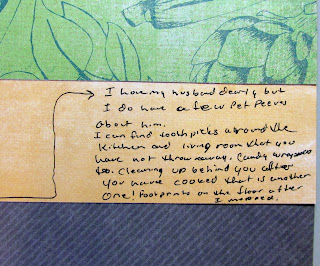 I love my husband dearly but
I do have a few Pet Peeves
About him.
I can find toothpicks around the
Kitchen and living room that you
have not throw away. Candy wrappers
too. Cleaning up behind you after
you have cooked that is another
One! Footprints on the floor after
I mopped.